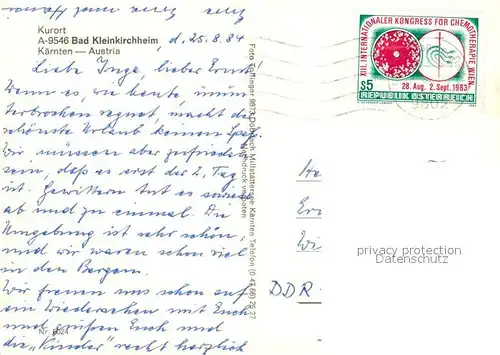 Kurort
A-9546 Bad Kleinkirchheim, d. 25.8.84
Kärnten — Austria
Liebe Inge, lieber Ernst!
Wenn es, wie heute, unun-
terbrochen regnet, macht der
schönste Urlaub keinen Spaß.
Wir müssen aber zufrieden
sein, daß es erst der 2. Tag
ist. Gewittern tut es sowieso
ab und zu einmal. Die
Umgebung ist sehr schön,
und wir waren schon viel
in den Bergen.
Wir freuen uns schon auf
ein Wiedersehen mit Euch
und grüßen Euch und
die "Kinder" recht herzlich
Nr. 8024
9873 Döbriach Millstättersee Kärnten Telefon (0 42 46)
Nachdruck verboten
XIII. INTERNATIONALER KONGRESS FÜR CHEMOTHERAPIE WIEN
28. Aug. 2. Sept. 1983
S5
REPUBLIK ÖSTERREICH
DDR
privacy protection
Datenschutz